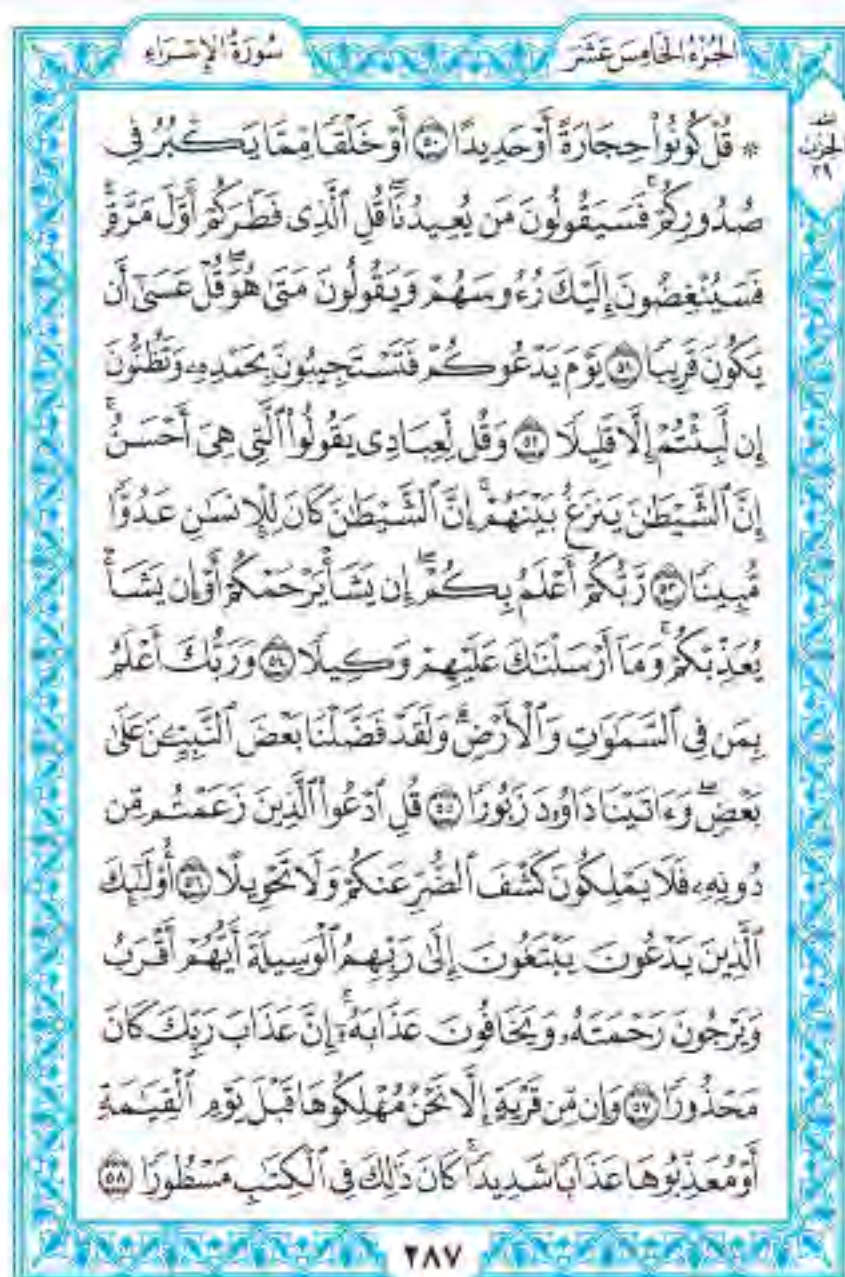 الجُزْءُ الخَامِسَ عَشَرَ
سُورَةُ الإِسْرَاءِ
نصف
الحزب
٢٩
* قُلْ كُونُواْ حِجَارَةً أَوْ حَدِيدًا ٥٠ أَوْ خَلْقًا مِّمَّا يَكْبُرُ فِي
صُدُورِكُمْۚ فَسَيَقُولُونَ مَن يُعِيدُنَاۖ قُلِ ٱلَّذِي فَطَرَكُمْ أَوَّلَ مَرَّةٖۚ
فَسَيُنْغِضُونَ إِلَيْكَ رُءُوسَهُمْ وَيَقُولُونَ مَتَىٰ هُوَۖ قُلْ عَسَىٰٓ أَن
يَكُونَ قَرِيبًا ٥١ يَوْمَ يَدْعُوكُمْ فَتَسْتَجِيبُونَ بِحَمْدِهِۦ وَتَظُنُّونَ
إِن لَّبِثْتُمْ إِلَّا قَلِيلًا ٥٢ وَقُل لِّعِبَادِي يَقُولُواْ ٱلَّتِي هِيَ أَحْسَنُۚ
إِنَّ ٱلشَّيْطَٰنَ يَنزَغُ بَيْنَهُمْۚ إِنَّ ٱلشَّيْطَٰنَ كَانَ لِلْإِنسَٰنِ عَدُوًّا
مُّبِينًا ٥٣ رَّبُّكُمْ أَعْلَمُ بِكُمْۖ إِن يَشَأْ يَرْحَمْكُمْ أَوْ إِن يَشَأْ
يُعَذِّبْكُمْۚ وَمَآ أَرْسَلْنَٰكَ عَلَيْهِمْ وَكِيلًا ٥٤ وَرَبُّكَ أَعْلَمُ
بِمَن فِي ٱلسَّمَٰوَٰتِ وَٱلْأَرْضِۗ وَلَقَدْ فَضَّلْنَا بَعْضَ ٱلنَّبِيِّـۧنَ عَلَىٰ
بَعْضٖۖ وَءَاتَيْنَا دَاوُۥدَ زَبُورًا ٥٥ قُلِ ٱدْعُواْ ٱلَّذِينَ زَعَمْتُم مِّن
دُونِهِۦ فَلَا يَمْلِكُونَ كَشْفَ ٱلضُّرِّ عَنكُمْ وَلَا تَحْوِيلًا ٥٦ أُوْلَٰٓئِكَ
ٱلَّذِينَ يَدْعُونَ يَبْتَغُونَ إِلَىٰ رَبِّهِمُ ٱلْوَسِيلَةَ أَيُّهُمْ أَقْرَبُ
وَيَرْجُونَ رَحْمَتَهُۥ وَيَخَافُونَ عَذَابَهُۥٓۚ إِنَّ عَذَابَ رَبِّكَ كَانَ
مَحْذُورًا ٥٧ وَإِن مِّن قَرْيَةٍ إِلَّا نَحْنُ مُهْلِكُوهَا قَبْلَ يَوْمِ ٱلْقِيَٰمَةِ
أَوْ مُعَذِّبُوهَا عَذَابًا شَدِيدًاۚ كَانَ ذَٰلِكَ فِي ٱلْكِتَٰبِ مَسْطُورًا ٥٨
٢٨٧